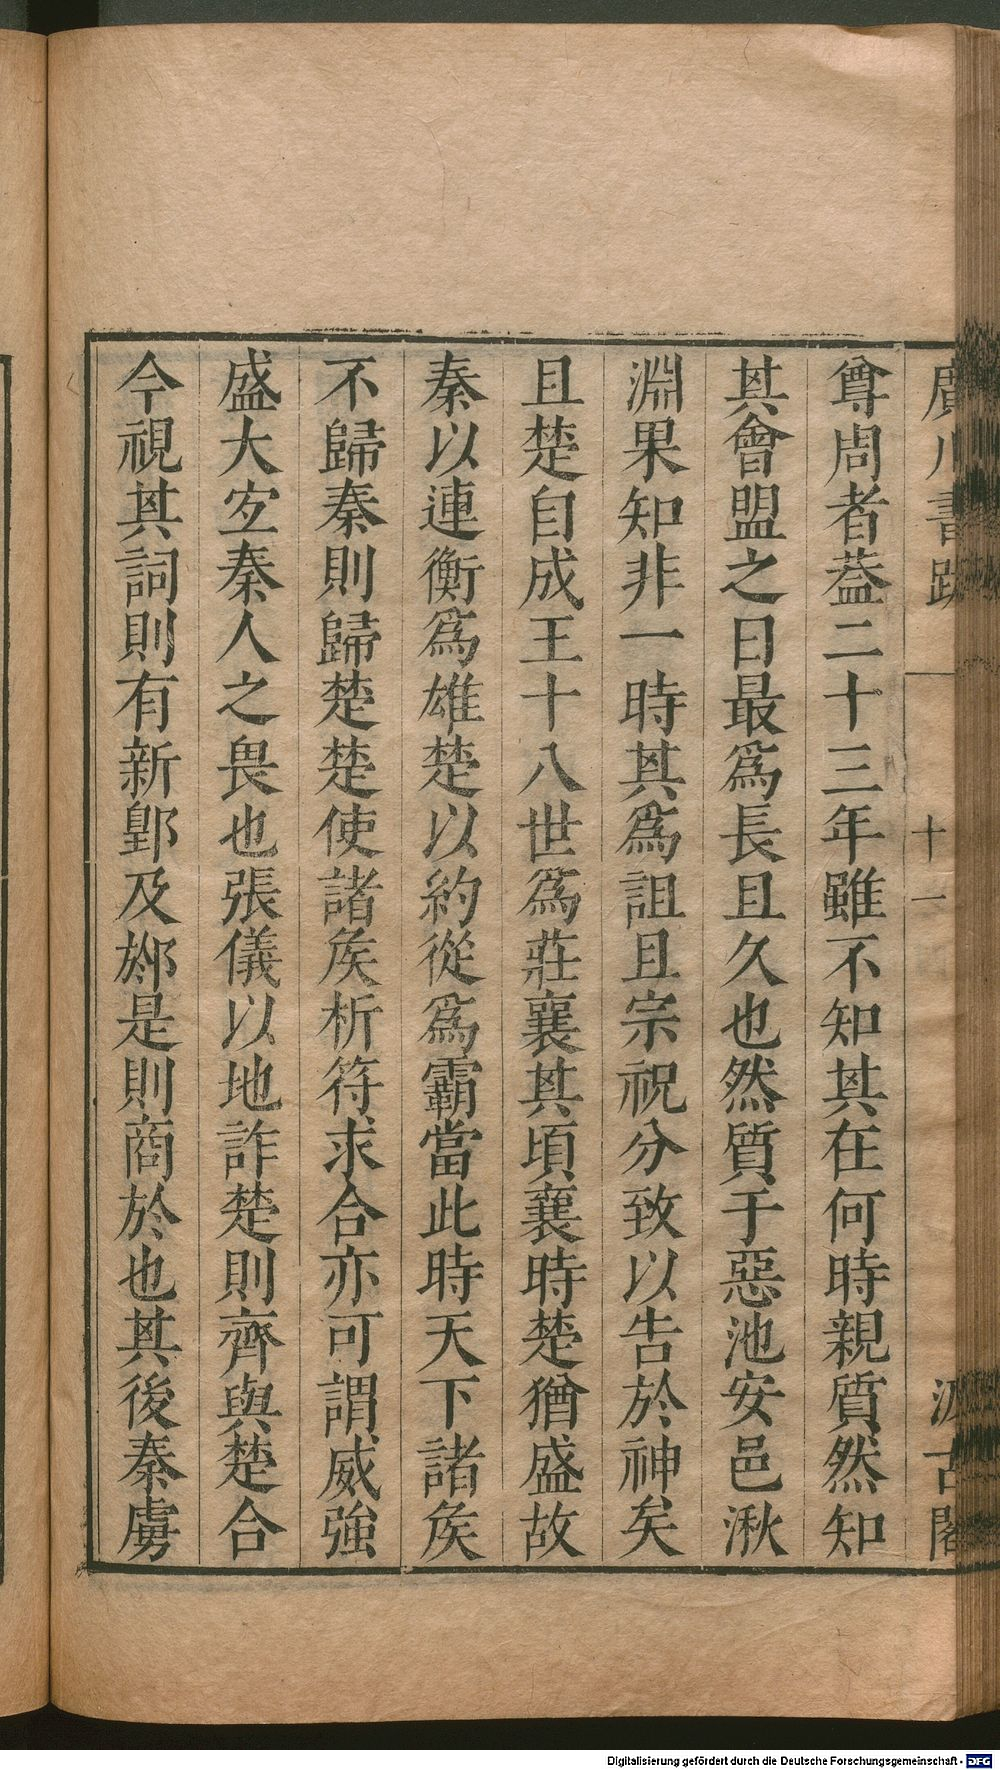 廣川書跋
十一
汲古閣
尊周者葢二十三年雖不知其在何時親質然知
其會盟之日最爲長且久也然質于惡池安邑湫
淵果知非一時其爲詛且宗祝分致以告於神矣
且楚自成王十八世爲莊襄其頃襄時楚猶盛故
秦以連衡爲雄楚以約從爲霸當此時天下諸矦
不歸秦則歸楚楚使諸矦析符求合亦可謂威強
盛大宐秦人之畏也張儀以地詐楚則齊與楚合
今視其詞則有新郢及𨛭是則商於也其後秦虜
Digitalisierung gefördert durch die Deutsche Forschungsgemeinschaft - DFG